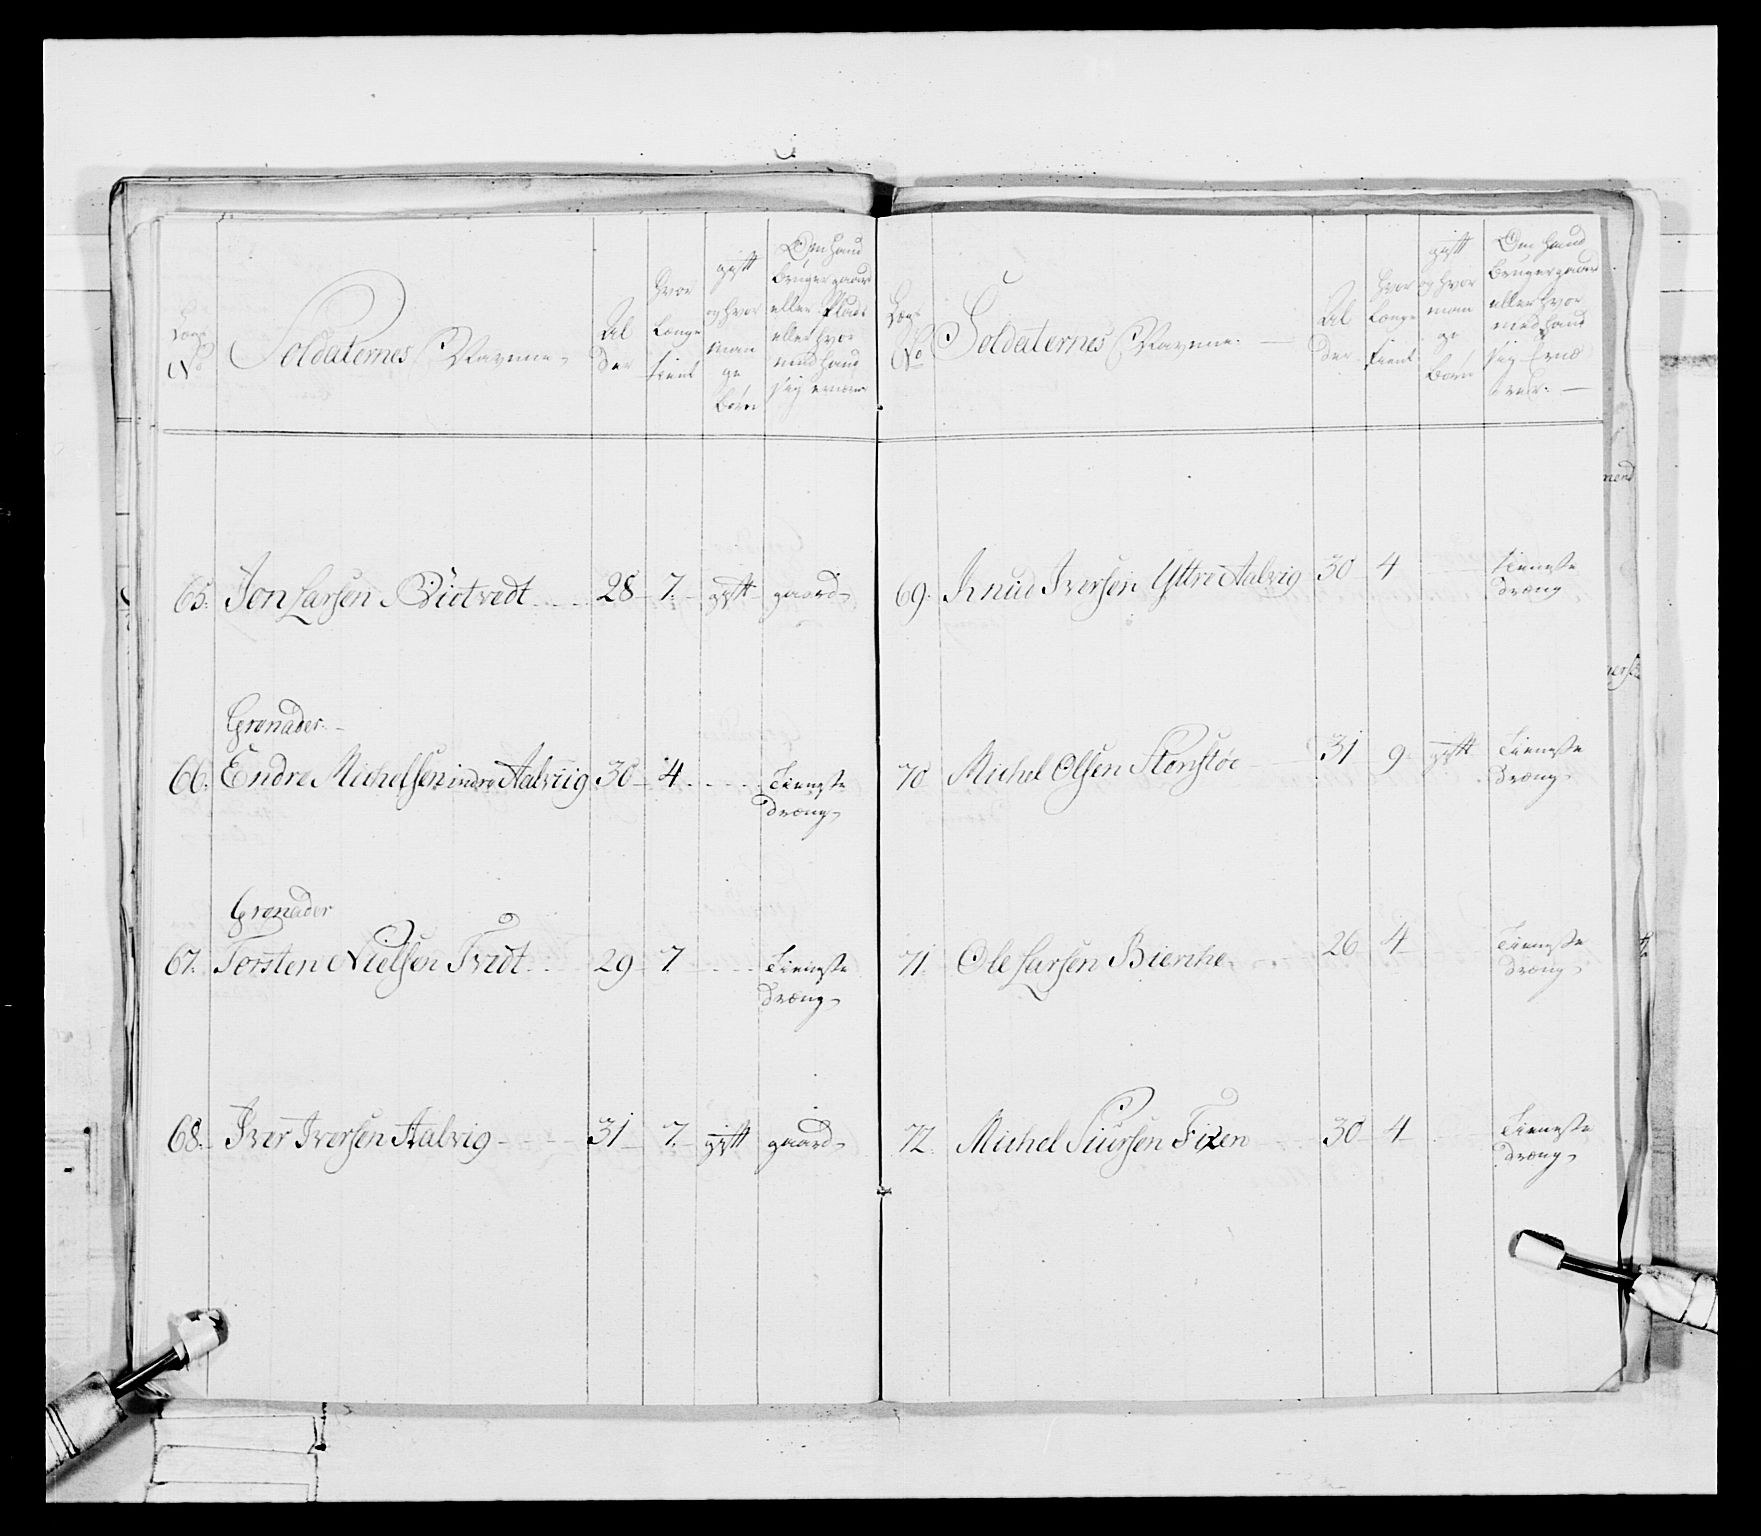 Lægs No
Soldaternes Navne
Alder
hvor længe tient
gift og hvor mange børn
Om hand bruger gaard eller Plads eller hvor med hand sig ernærer
65. Jon Larsen Biotvedt 28 7. gift gaard
Grenader
66. Endre Michelsen indre Aalviig 30 4 Tieneste
dræng
Grenader
67. Torsten Nielsen Tvedt 29 7. Tieneste
dræng
68. Iver Iversen Aalvig 31 7. gift gaard
Lægs No
Soldaternes Navne
Alder
hvor længe tient
gift og hvor mange børn
Om hand bruger gaard eller hvor med hand sig ernærer
69. Knud Iversen Yttre Aalvig 30 4 tieneste
dræng
70 Michel Olsen Stenstøe 31 9 gift Tieneste
dræng
71. Ole Larsen Bierche 26 4 Tieneste
dræng
72. Michel Siursen Fixen 30 4 Tieneste
dræng